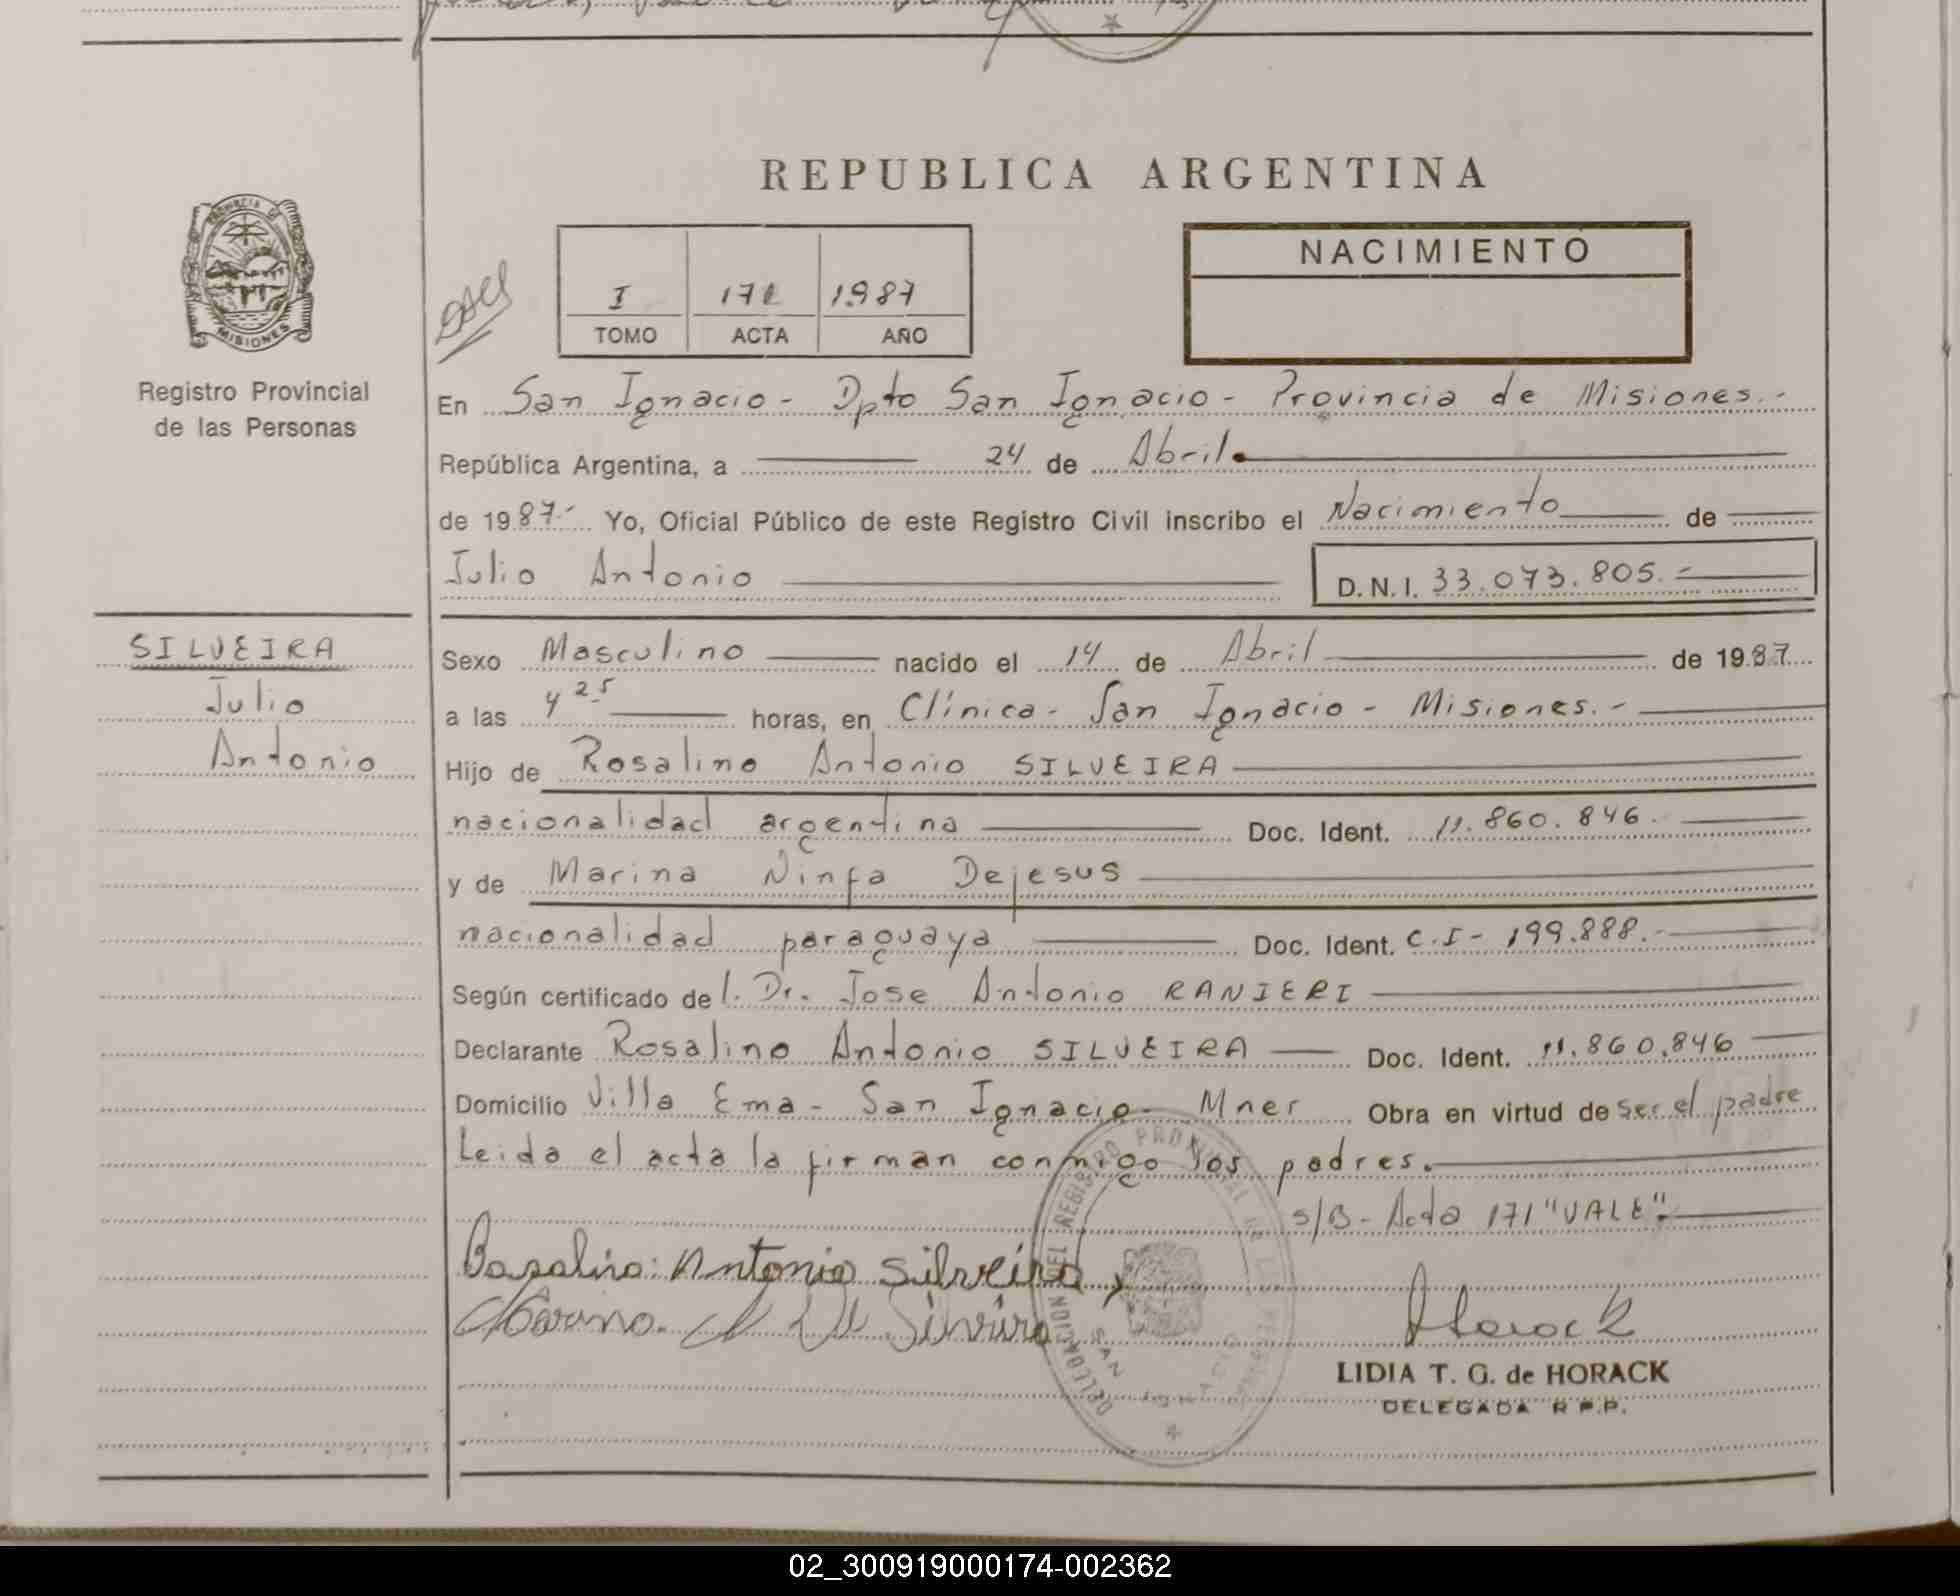 REPUBLICA ARGENTINA
PROVINCIA DE
MISIONES
Registro Provincial
de las Personas
NACIMIENTO
I 171 1987
TOMO ACTA AÑO
En San Ignacio - Dpto San Ignacio - Provincia de Misiones.-
República Argentina, a 24 de Abril
de 1987.- Yo, Oficial Público de este Registro Civil inscribo el Nacimiento de
Julio Antonio D.N.I. 33.073.805.-
SILVEIRA
Julio
Antonio
Sexo Masculino nacido el 14 de Abril de 1987
a las 4 25 horas, en Clínica - San Ignacio - Misiones.-
Hijo de Rosalino Antonio SILVEIRA
nacionalidad argentina Doc. Ident. 11.860.846.
y de Marina Ninfa Dejesus
nacionalidad paraguaya Doc. Ident. C.I - 199.888.-
Según certificado del. Dr. Jose Antonio RANIERI
Declarante Rosalino Antonio SILVEIRA Doc. Ident. 11.860.846
Domicilio Villa Ema - San Ignacio - Mner Obra en virtud de ser el padre
Leida el acta la firman conmigo los padres.
s/B - Acta 171 "VALE".
Rosalino Antonio Silveira
Marina N D de Silveira
Horack
LIDIA T. G. de HORACK
DELEGADA R.P.P.
DELEGACION DEL REGISTRO PROVINCIAL DE LAS PERSONAS
SAN IGNACIO
02_300919000174-002362